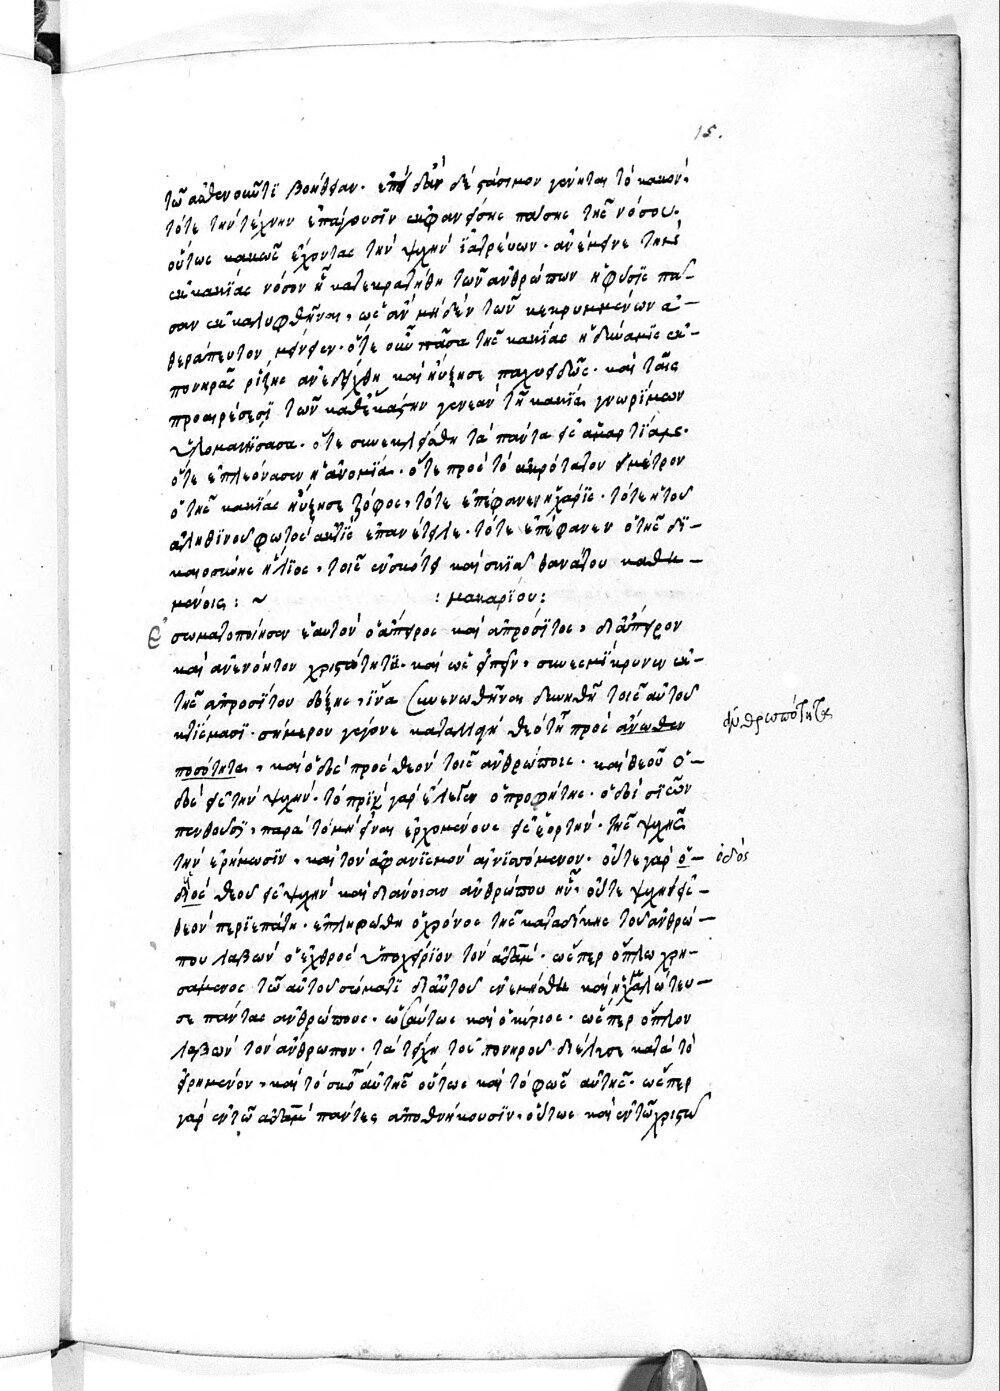 15.
τῶ ἀσθενοῦντι βοήθειαν. ἐπειδὰν δὲ στάσιμον γένηται τὸ κακὸν.
τότε τὴν τέχνην ἐπάγουσιν ἐκφανείσης πάσης τῆς νόσου.
οὕτως κακῶς ἔχοντας τὴν ψυχὴν ἰατρεύων. ἀνέμεινε τὴν
ἐκ κακίας νόσον ἧ κατεκρατήθη τῶν ἀνθρώπων ἡ φύσις πᾶ
σαν ἐκκαλυφθῆναι, ὡς ἂν μηδὲν τῶν κεκρυμμένων ἀ-
θεράπευτον μείνειεν. ὅτε οὖν πᾶσα τῆς κακίας ἡ δύναμις ἐκ
πονηρᾶς ῥίζης ἀνεδείχθη καὶ ηὔξησε πολυειδῶς. καὶ ταῖς
προαιρέσεσι τῶν καθ' ἑκάστην γενεὰν τῆ κακία γνωρίμων
ὑλομανήσασα. ὅτε συνεκλείσθη τὰ πάντα εἰς ἁμαρτίαν.
ὅτε ἐπλεόνασεν ἡ ἀνομία. ὅτε πρὸς τὸ ἀκρότατον μέτρον
ὁ τῆς κακίας ηὔξησε ζόφος, τότε ἐπέφανεν ἡ χάρις. τότε ἡ τοῦ
ἀληθινοῦ φωτὸς ἀκτὶς ἐπανέτειλε. τότε ἐπέφανεν ὁ τῆς δι-
καιοσύνης ἥλιος, τοῖς ἐν σκότει καὶ σκιᾶ θανάτου καθη-
μένοις: ~ : μακαρίου:
Ἐσωματοποίησεν ἑαυτὸν ὁ ἄπειρος καὶ ἀπρόσιτος, δι' ἄπειρον
καὶ ἀνενόητον χρηστότητα. καὶ ὡς εἰπεῖν, συνεσμίκρυνεν ἐκ
τῆς ἀπροσίτου δόξης, ἵνα συνενωθῆναι δυνηθῆ τοῖς αὐτοῦ
κτίσμασι. σήμερον γέγονε καταλλαγὴ θεότητι πρὸς ἀνωθεν
ποσότητα, καὶ ὁδὸς πρὸς θεὸν τοῖς ἀνθρώποις. καὶ θεοῦ ὁ-
δὸς εἰς τὴν ψυχήν. τὸ πρὶν γὰρ ἔλεγεν ὁ προφήτης. ὁδοὶ σιὼν
πενθοῦσι, παρὰ τὸ μὴ εἶναι ἐρχομένους εἰς ἑορτήν. τῆς ψυχῆς
τὴν ἐρήμωσιν, καὶ τὸν ἀφανισμὸν αἰνιττόμενον. οὔτε γὰρ ὁ-
διος θεοῦ εἰς ψυχὴν καὶ διάνοιαν ἀνθρώπου ἦν, οὔτε ψυχὴ εἰς
θεὸν περιεπάτη. ἐπληρώθη ὁ χρόνος τῆς καταδίκης τοῦ ἀνθρώ-
που λαβὼν ὁ ἐχθρὸς ὑποχείριον τὸν ἀδάμ. ὥσπερ ὅπλω χρη-
σάμενος τῶ αὐτοῦ σώματι δι' αὐτοῦ ἐνεμήθη καὶ ἠχμαλώτευ-
σε πάντας ἀνθρώπους. ὡσαύτως καὶ ὁ κύριος. ὥσπερ ὅπλον
λαβὼν τὸν ἄνθρωπον. τὰ τείχη τοῦ πονηροῦ διέλυσε κατὰ τὸ
εἰρημένον, καὶ τὸ σκότος αὐτῆς οὕτως καὶ τὸ φῶς αὐτῆς. ὥσπερ
γὰρ ἐν τῶ ἀδὰμ πάντες ἀποθνήκουσιν, οὕτως καὶ ἐν τῶ χριστῶ
ἀνθρωπότητα
ὁδός